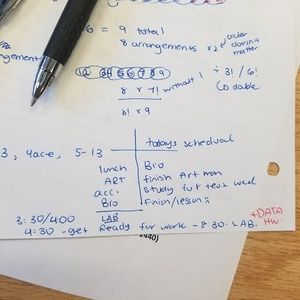 6 = 9 total
8 arrangements x2 order doesn't matter
12 3 4 5 6 7 8 9
8 x 7! without 1 ÷ 3! / 6!
8! x 9
todays schedual
3, 4ace, 5-13
lunch Bio
ART finish Art mon
acc. study for test wed
Bio finish/lesson
3:30/4:00 LAB
4:30 - get Ready for work - 8:30. LAB.
+DATA
HW.